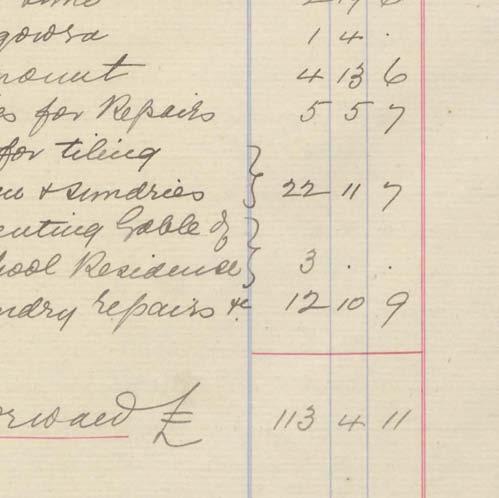 gowra 1 4 .
mount 4 13 6
es for Repairs 5 5 7
for tiling
& Sundries 22 11 7
enting Gable of
hool Residence 3 . .
ndry repairs &. 12 10 9
orward £ 113 4 11